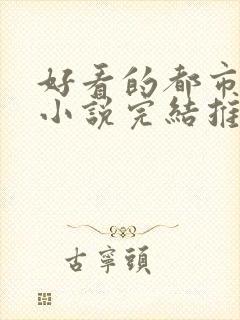 好看的都市
小說完結推
古寧頭